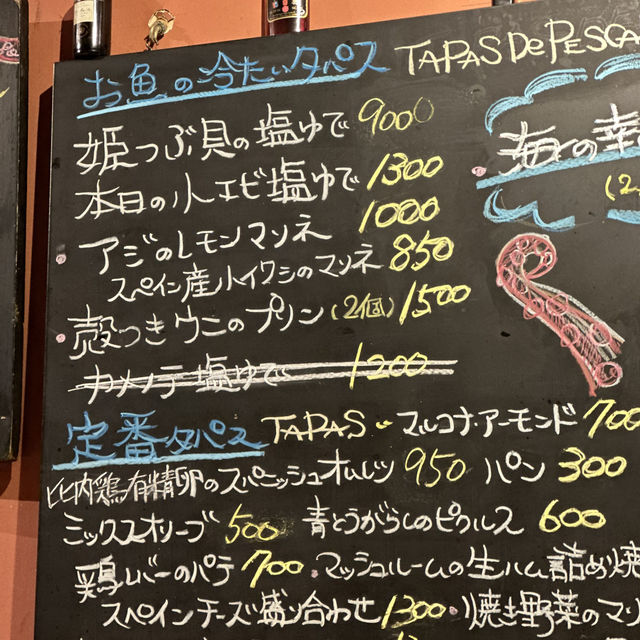 お魚の冷たいタパス TAPAS De PESCA
姫つぶ貝の塩ゆで 900
本日の小エビ塩ゆで 1300
・アジのレモンマリネ 1000
スペイン産小イワシのマリネ 850
・殻つきウニのプリン(2個) 1500
カメノテ塩ゆで 1200
・海の幸
(2
定番タパス TAPAS
マルコナ・アーモンド 700
比内鶏有精卵のスパニッシュオムレツ 950 パン 300
ミックスオリーブ 500 青とうがらしのピクルス 600
鶏レバーのパテ 700 ・マッシュルームの生ハム詰め焼
スペインチーズ盛り合わせ 1300 ・焼き野菜のマリ